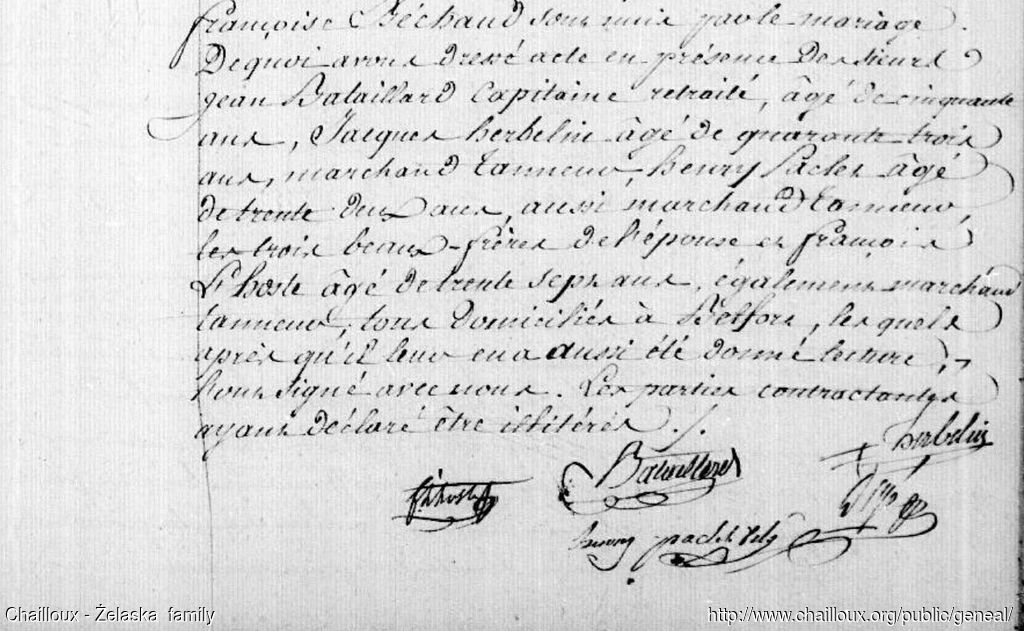 françoise Béchaud sont unis par le mariage.
De quoi avons dressé acte en présence Des sieurs
Jean Bataillard Capitaine retraité, âgé de cinquante
ans, Jacques herbelin âgé de quarante trois
ans, marchand tanneur, henry Paclet âgé
de trente deux ans, aussi marchand tanneur,
les trois beaux-frères de l'épouse et françois
L'hoste âgé de trente sept ans, également marchand
tanneur, tous domiciliés à Belfort, lesquels
après qu'il leur en a aussi été donné lecture,
l'ont signé avec nous. Les parties contractantes
ayant déclaré être illitérés ./.
herbelin
Bataillard
f. l'hoste
henry
Chailloux - Żelaska family
http://www.chailloux.org/public/geneal/